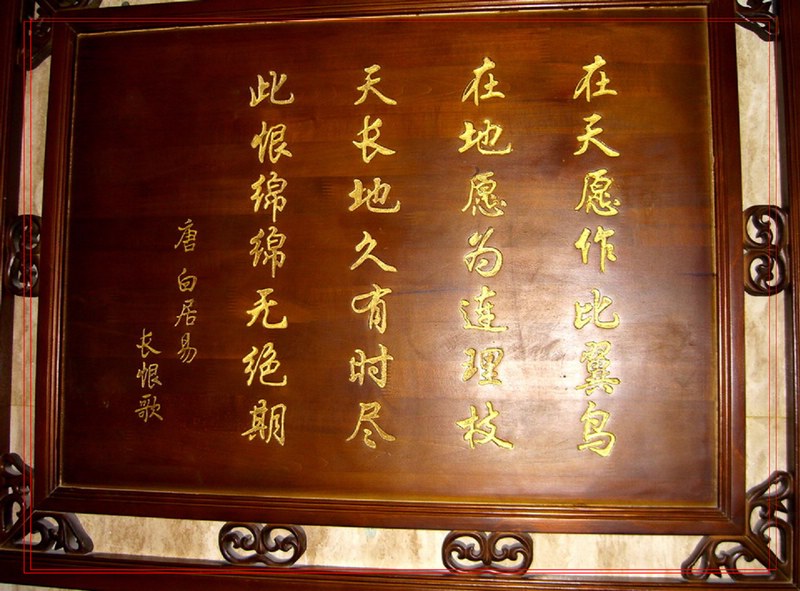 在天愿作比翼鸟
在地愿为连理枝
天长地久有时尽
此恨绵绵无绝期
唐 白居易
长恨歌